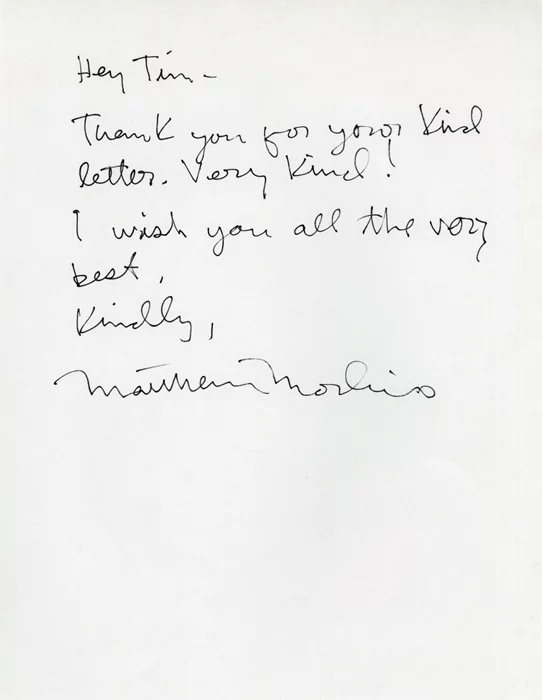 Hey Tim -
Thank you for your kind
letter. Very kind!
I wish you all the very
best,
Kindly,
Matthew Modine